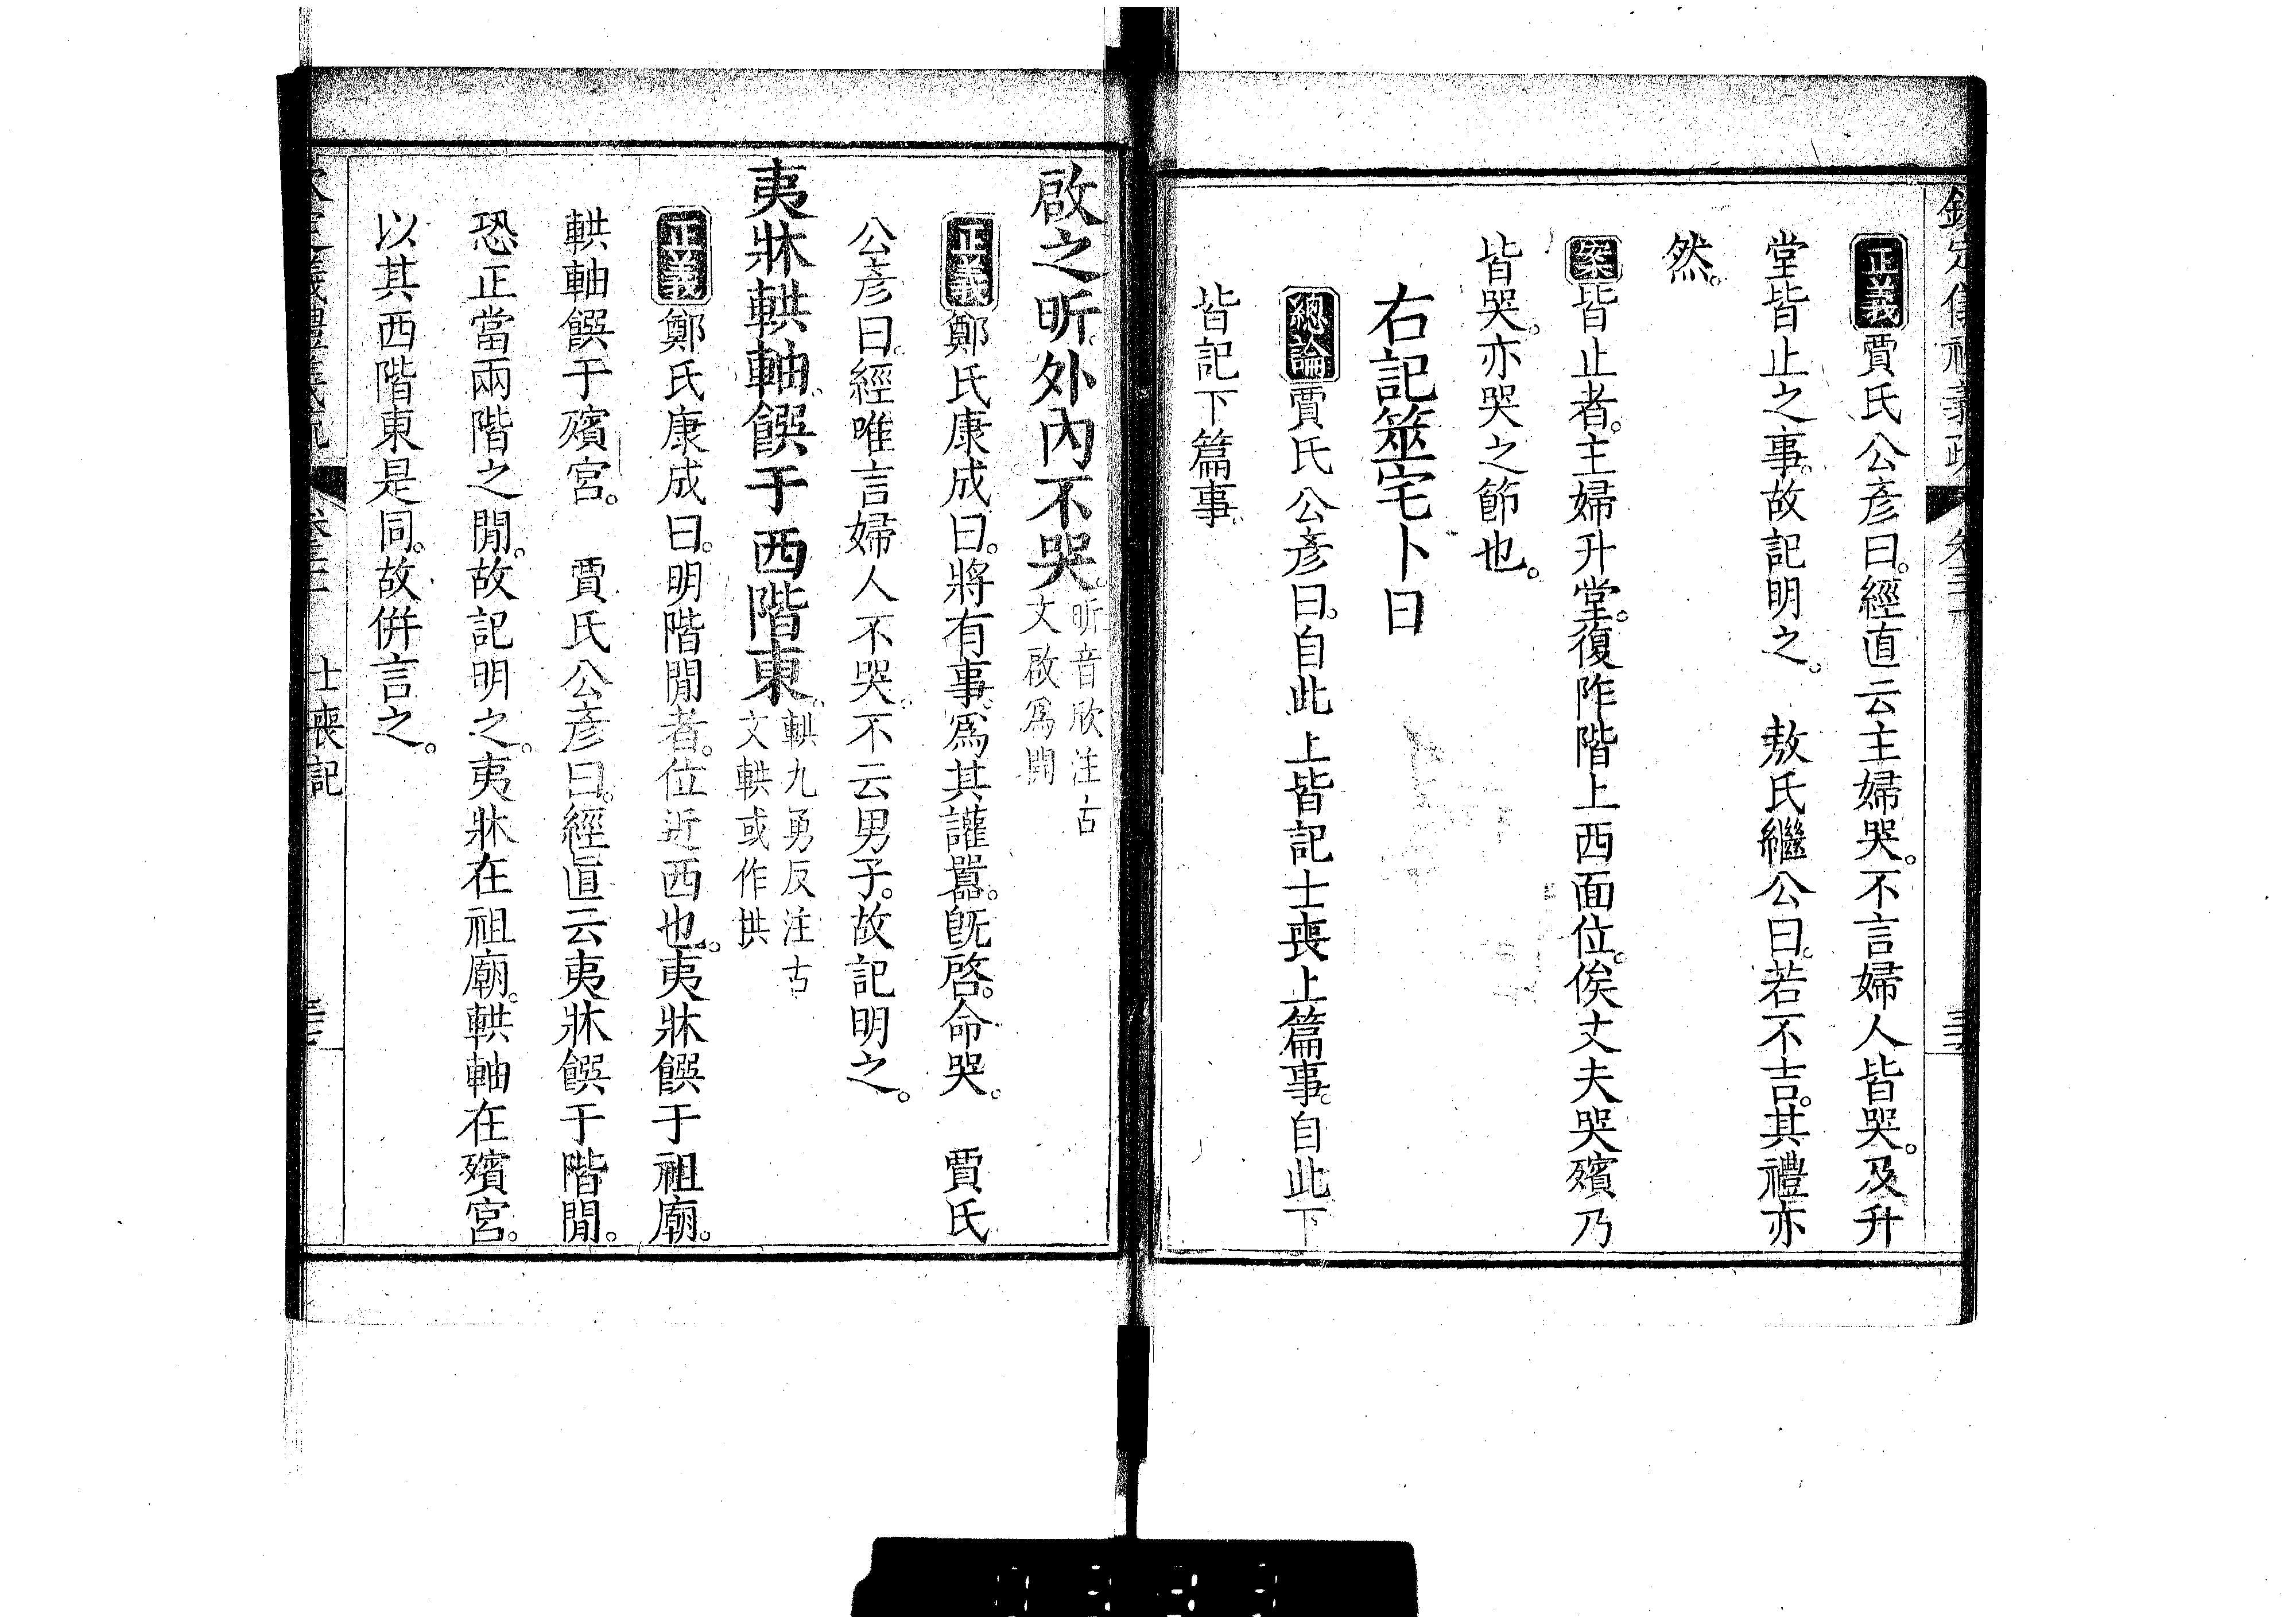 欽定儀禮義疏
正義賈氏公彥曰。經直云主婦哭。不言婦人皆哭。及升
堂皆止之事。故記明之。 敖氏繼公曰。若不吉。其禮亦
然。
案皆止者。主婦升堂。復阼階上西面位。俟丈夫哭殯乃
皆哭。亦哭之節也。
右記筮宅卜日
總論賈氏公彥曰。自此上皆記士喪上篇事。自此下
皆記下篇事。
啟之昕。外內不哭。昕音欣注古
文啟爲開
正義鄭氏康成曰。將有事。爲其讙嚣。旣啓。命哭。 賈氏
公彥曰。經唯言婦人不哭。不云男子。故記明之。
夷牀輁軸。饌于西階東。輁九勇反注古
文輁或作拱
正義鄭氏康成曰。明階閒者。位近西也。夷牀饌于祖廟。
輁軸饌于殯宮。 賈氏公彥曰。經直云夷牀饌于階閒。
恐正當兩階之閒。故記明之。夷牀在祖廟。輁軸在殯宮。
以其西階東是同。故併言之。
士喪記